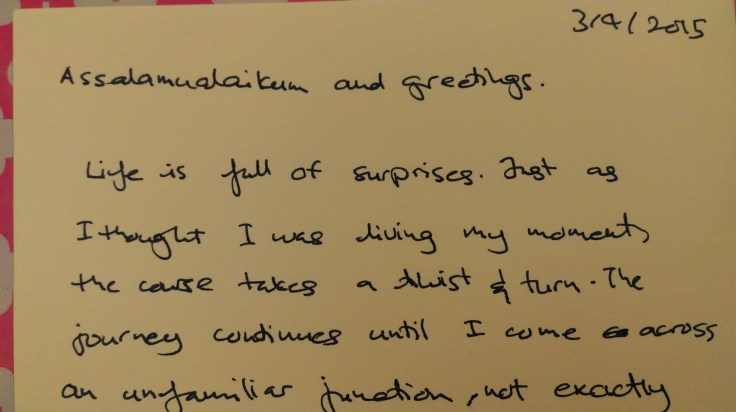 3/4/2015
Assalamualaikum and greetings.
Life is full of surprises. Just as
I thought I was living my moment,
the course takes a twist & turn. The
journey continues until I come across
an unfamiliar junction, not exactly